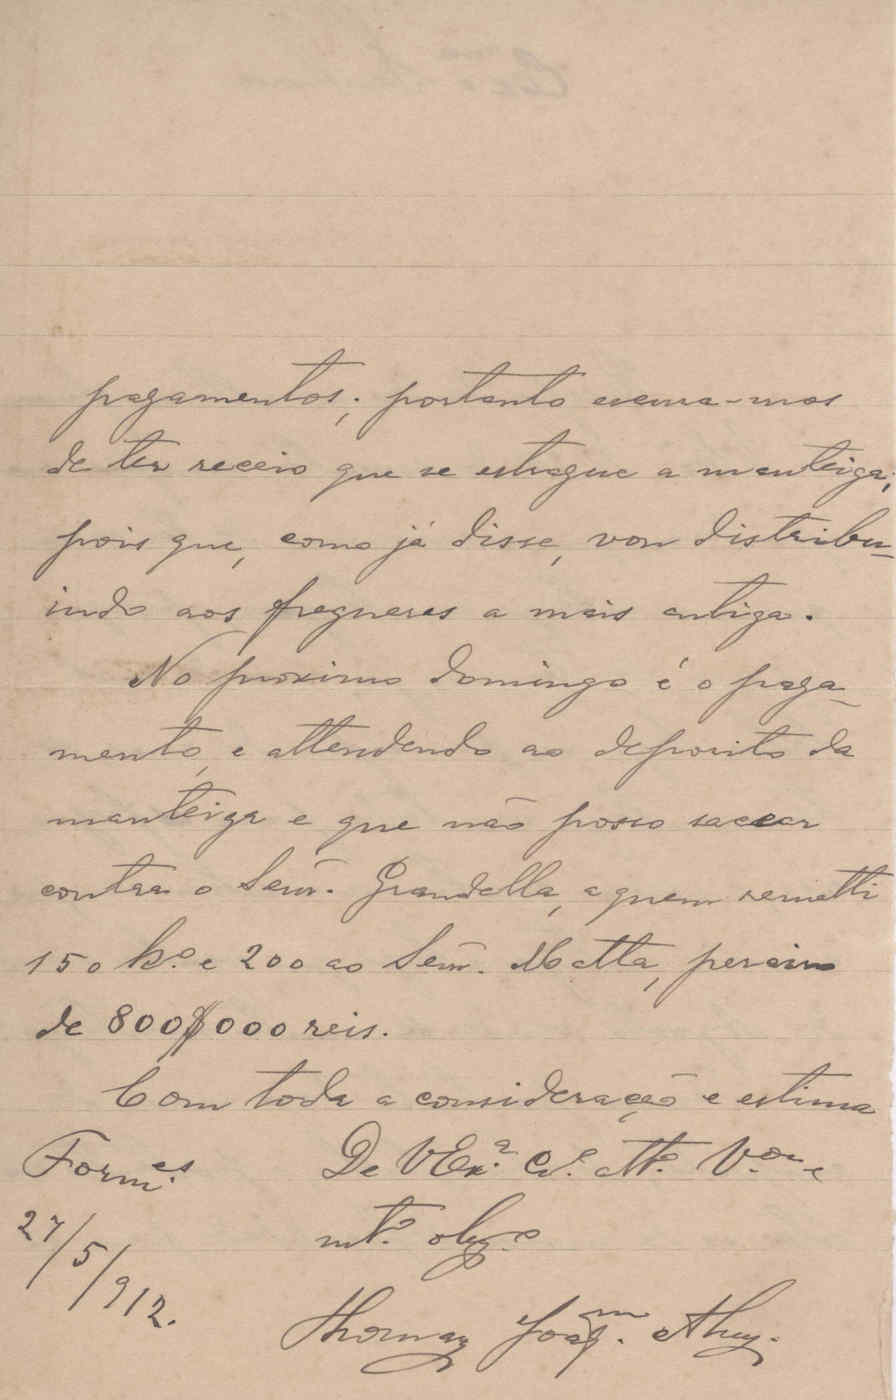 pagamentos; portanto escusa-mos
de ter receio que se estrague a manteiga;
pois que, como já disse, vou distribu-
indo aos freguezes a mais antiga.
No proximo domingo é o paga-
mento, e attendendo ao deposito da
manteiga e que não posso saccar
contra o Senr. Grandella, a quem remetti
150 ko. e 200 ao Senr. Motta, preciso
de 800$000 reis.
Com toda a consideração e estima
Form.es De V Ex.ª
27/5/912. mt.º obg.º
Thomaz Joaq.m